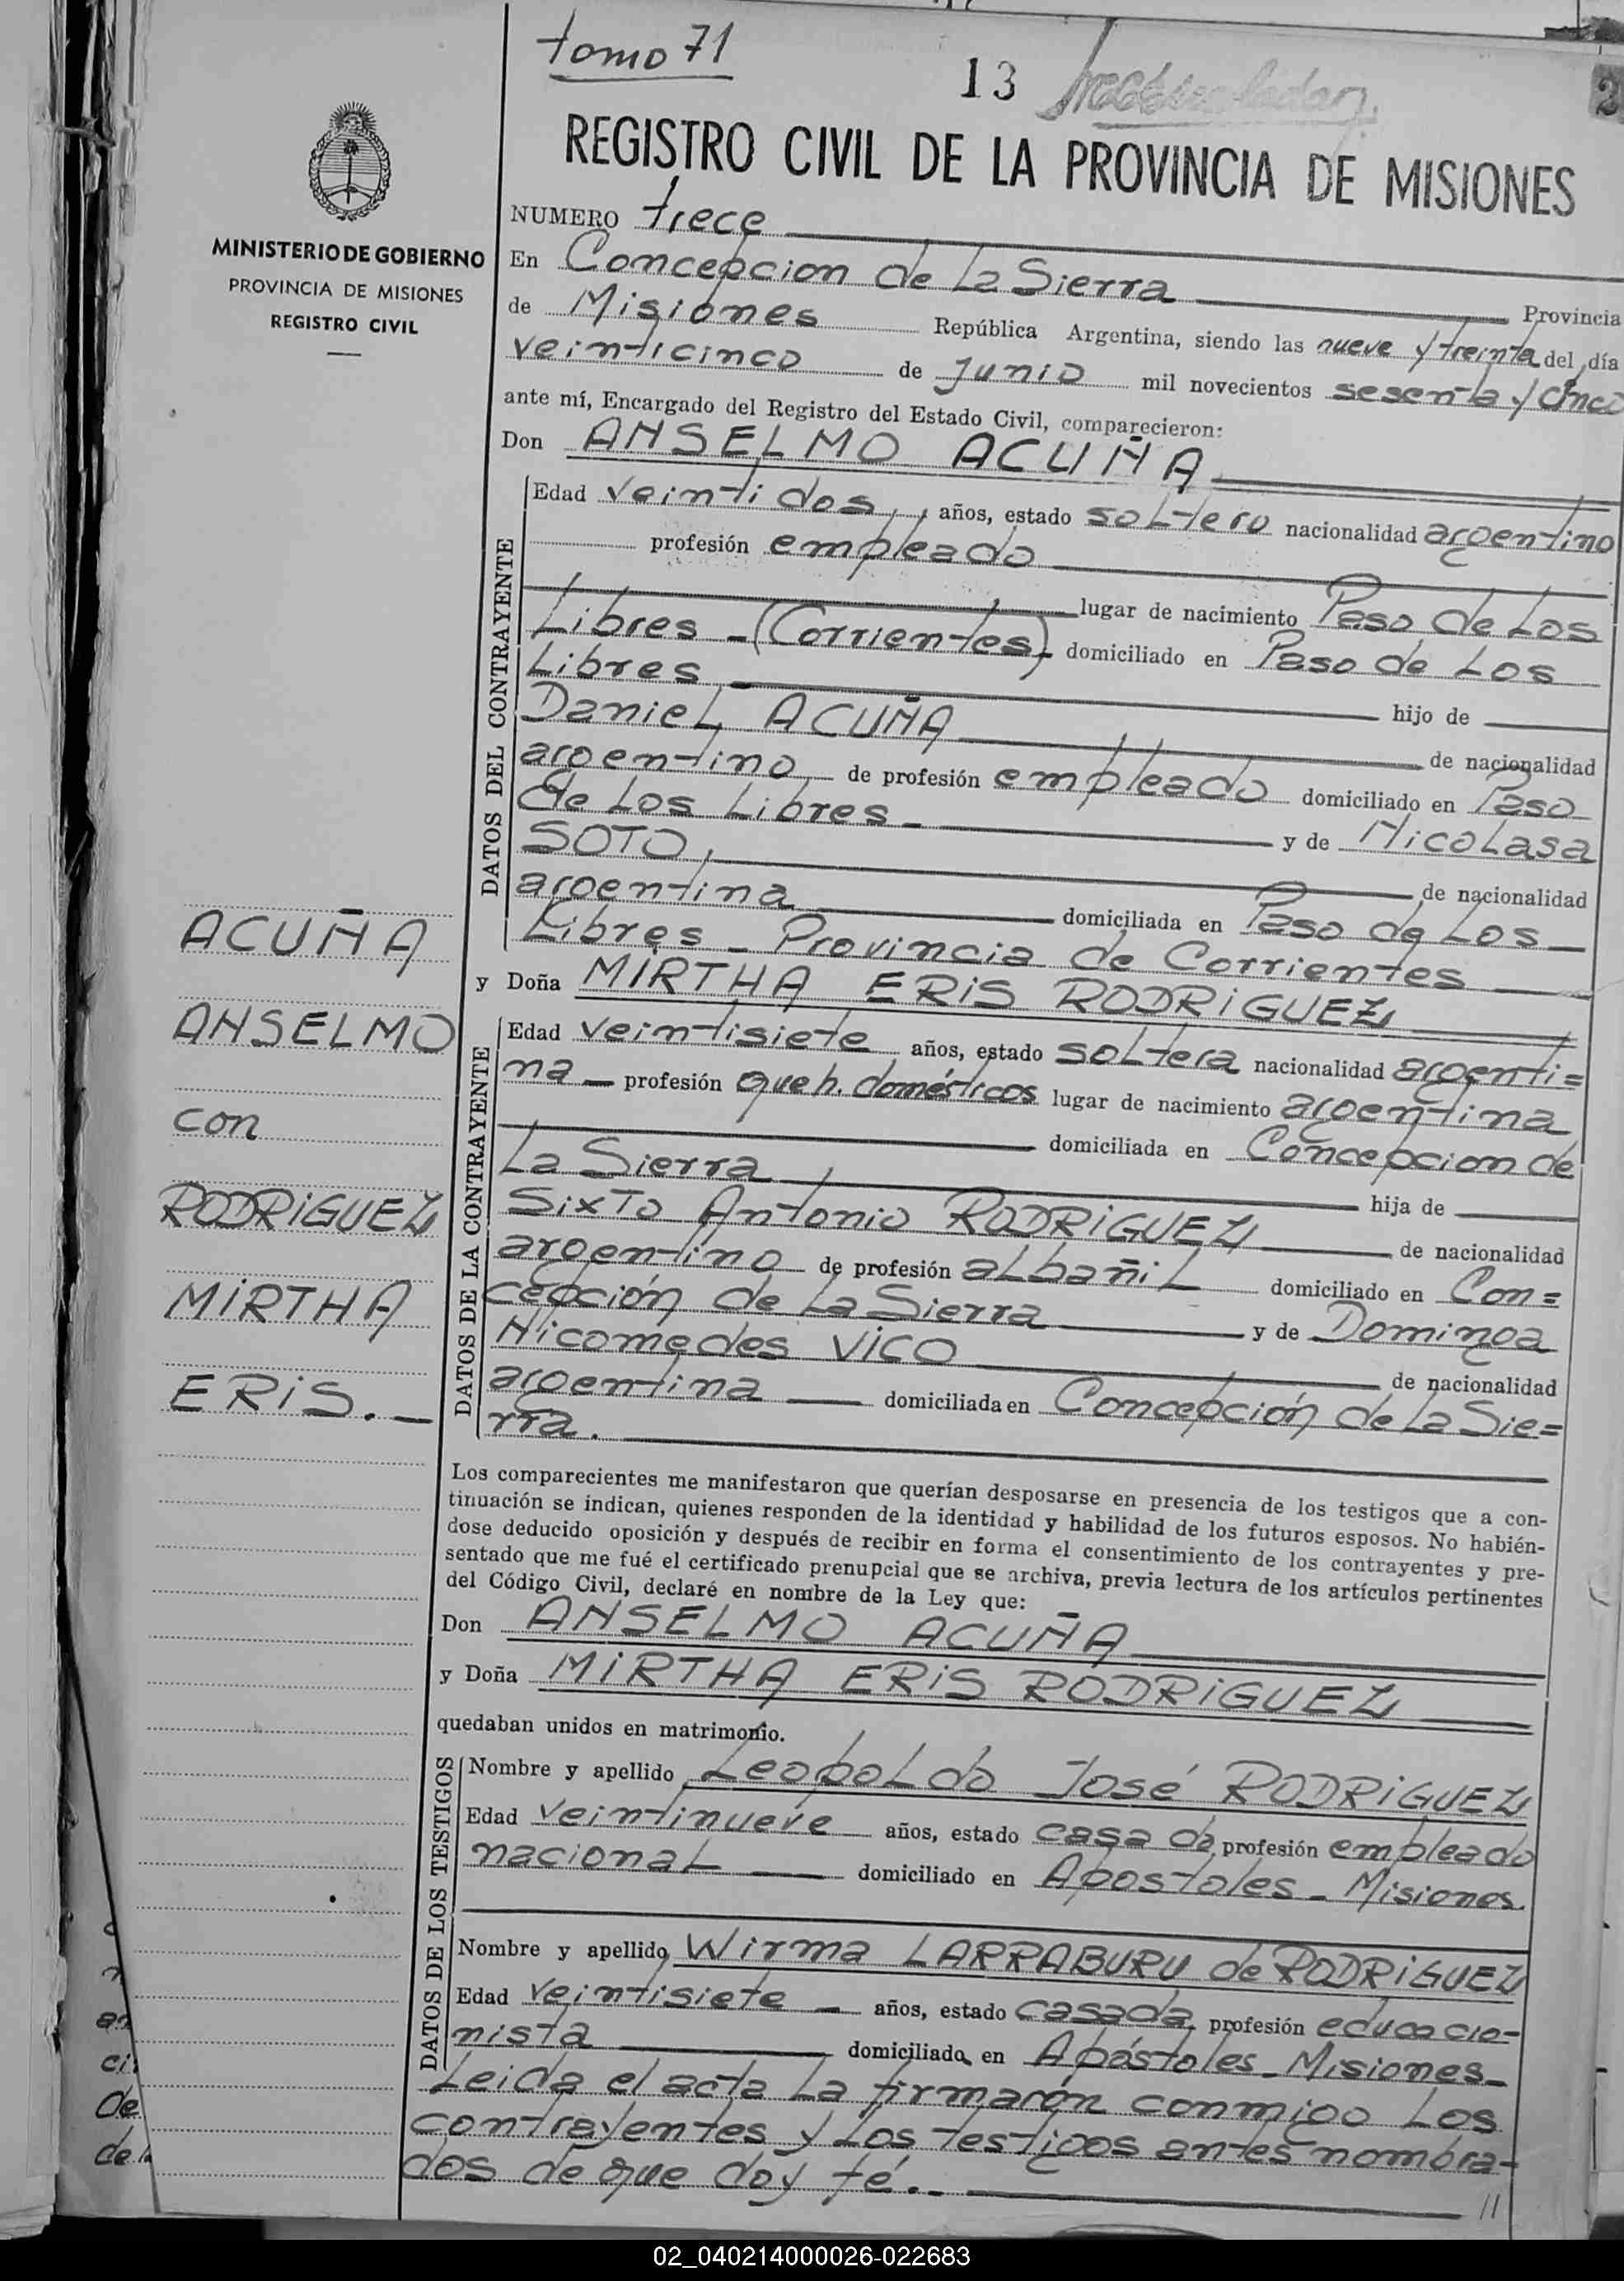 tomo 71
13
2
REGISTRO CIVIL DE LA PROVINCIA DE MISIONES
MINISTERIO DE GOBIERNO
PROVINCIA DE MISIONES
REGISTRO CIVIL
NUMERO trece
En Concepcion de La Sierra Provincia
de Misiones República Argentina, siendo las nueve y treinta del día
veinticinco de Junio mil novecientos sesenta y cinco
ante mí, Encargado del Registro del Estado Civil, comparecieron:
Don ANSELMO ACUÑA
DATOS DEL CONTRAYENTE
Edad veintidos, años, estado soltero nacionalidad argentino
profesión empleado
lugar de nacimiento Paso de Los
Libres - (Corrientes) - domiciliado en Paso de Los
Libres hijo de
Daniel ACUÑA de nacionalidad
argentino de profesión empleado domiciliado en Paso
de Los Libres - y de Nicolasa
SOTO, de nacionalidad
argentina domiciliada en Paso de Los
Libres - Provincia de Corrientes
y Doña MIRTHA ERIS RODRIGUEZ
DATOS DE LA CONTRAYENTE
Edad veintisiete años, estado soltera nacionalidad argenti=
na - profesión queh. domésticos lugar de nacimiento argentina
domiciliada en Concepcion de
La Sierra hija de
Sixto Antonio RODRIGUEZ de nacionalidad
argentino de profesión albañil domiciliado en Con=
cepción de La Sierra y de Dominga
Nicomedes VICO de nacionalidad
argentina domiciliada en Concepción de La Sie=
rra.
ACUÑA
ANSELMO
con
RODRIGUEZ
MIRTHA
ERIS. -
Los comparecientes me manifestaron que querían desposarse en presencia de los testigos que a con-
tinuación se indican, quienes responden de la identidad y habilidad de los futuros esposos. No habién-
dose deducido oposición y después de recibir en forma el consentimiento de los contrayentes y pre-
sentado que me fué el certificado prenupcial que se archiva, previa lectura de los artículos pertinentes
del Código Civil, declaré en nombre de la Ley que:
Don ANSELMO ACUÑA
y Doña MIRTHA ERIS RODRIGUEZ
quedaban unidos en matrimonio.
DATOS DE LOS TESTIGOS
Nombre y apellido Leopoldo José RODRIGUEZ
Edad veintinueve años, estado casado profesión empleado
nacional domiciliado en Apostoles - Misiones.
Nombre y apellido Wirma LARRABURU de RODRIGUEZ
Edad veintisiete - años, estado casada profesión educacio-
nista domiciliada en Apóstoles - Misiones -
Leida el acta la firmarón conmigo Los
contrayentes y Los testigos antes nombra-
dos de que doy fé. -
//
de
de l
02_040214000026-022683